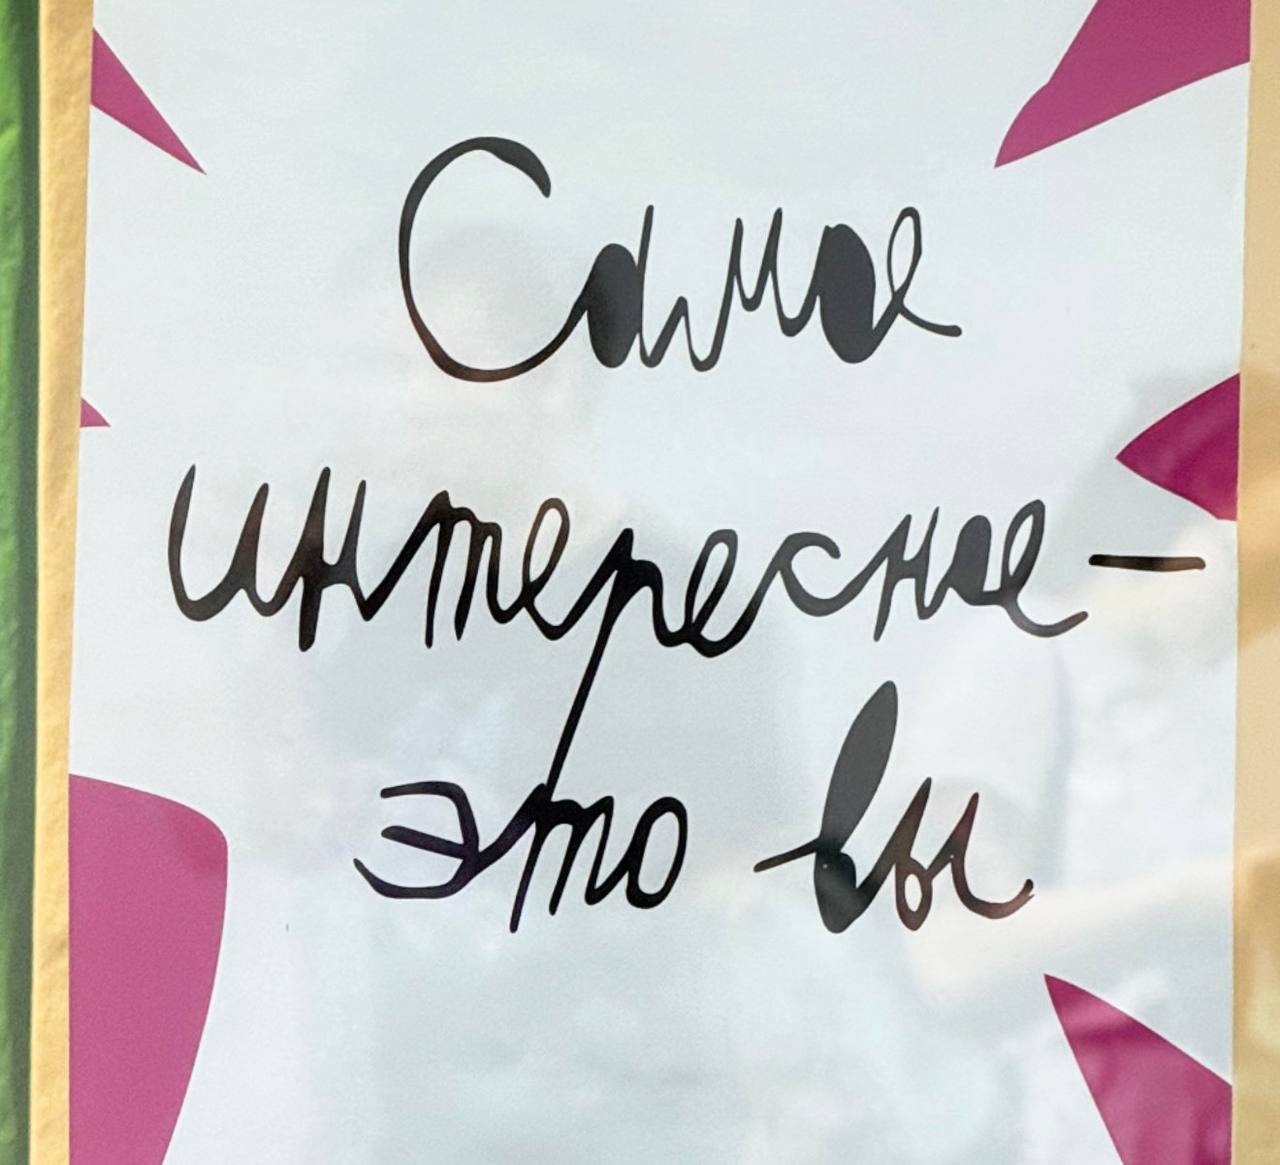 Самое
интересное –
это вы